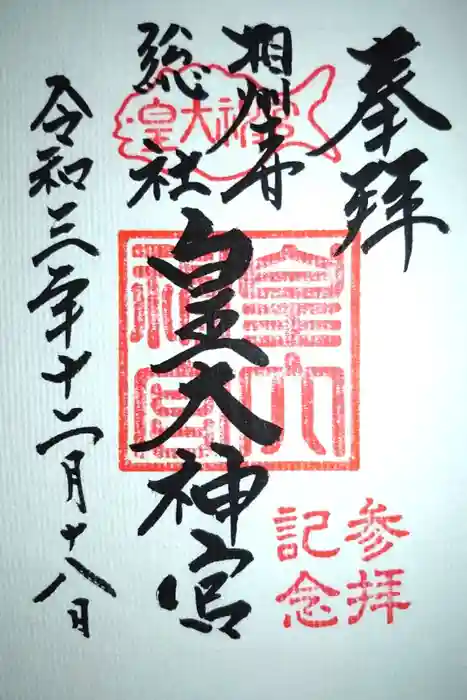 奉拝
相州寒川
総社
皇大神宮
令和三年十二月十八日
皇大神宮
皇大神宮
参拝
記念